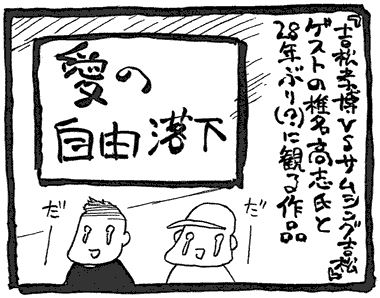 『吉松孝博VSサムシング吉松』
ゲストの椎名高志氏と
28年ぶり(?)に観る作品
愛の
自由落下
だー
だー